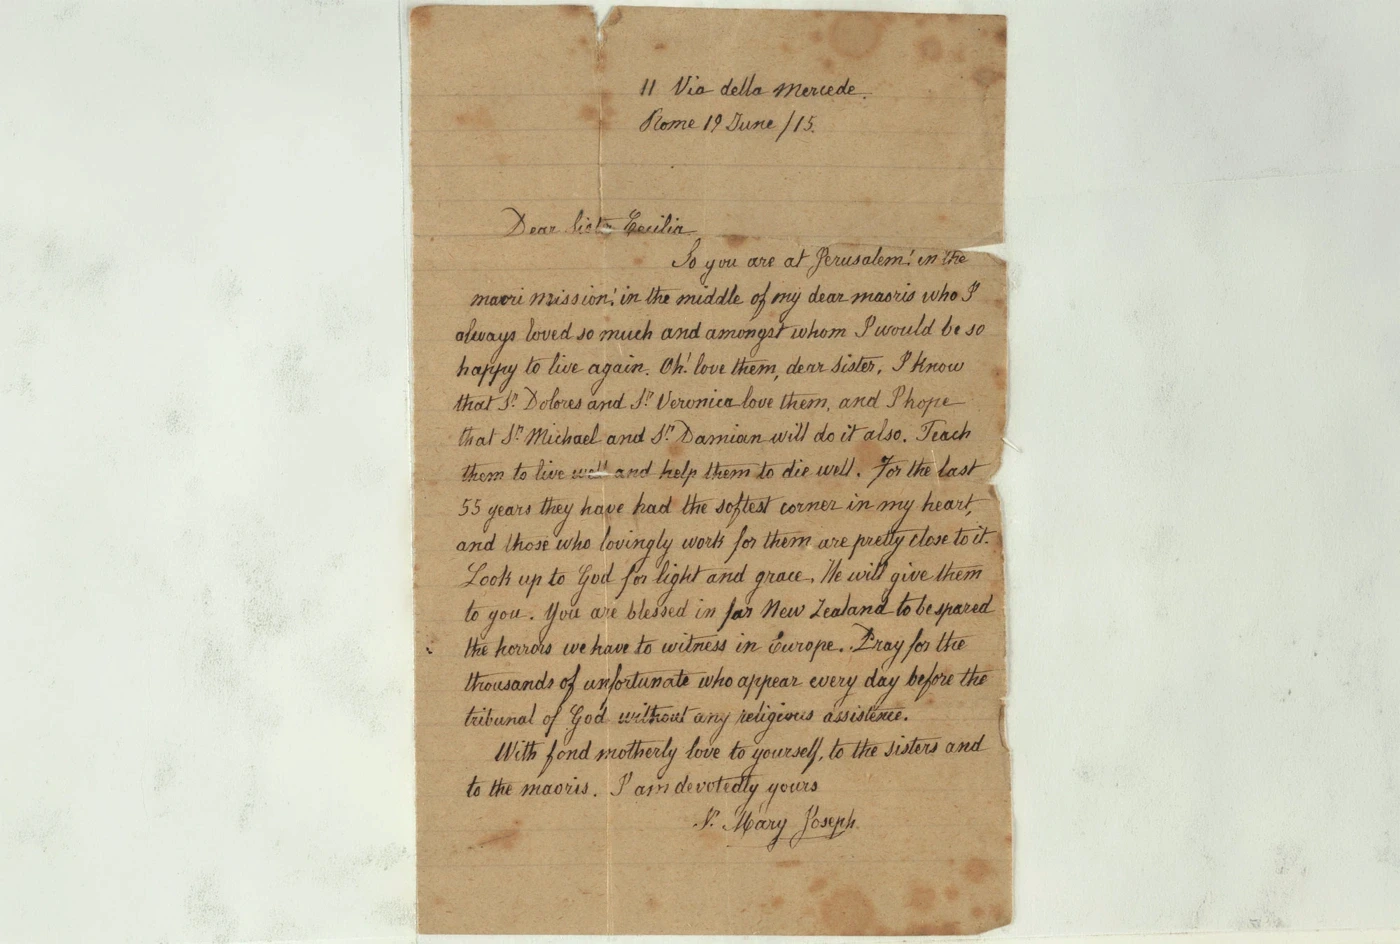 11 Via della Mercede.
Rome 19 June /15.
Dear Sister Cecilia
So you are at Jerusalem! in the
maori mission! in the middle of my dear maoris who I
always loved so much and amongst whom I would be so
happy to live again. Oh! love them, dear sister, I know
that Sr Dolores and Sr Veronica love them, and I hope
that Sr Michael and Sr Damian will do it also. Teach
them to live well and help them to die well. For the last
55 years they have had the softest corner in my heart,
and those who lovingly work for them are pretty close to it.
Look up to God for light and grace, He will give them
to you. You are blessed in far New Zealand to be spared
the horrors we have to witness in Europe. Pray for the
thousands of unfortunate who appear every day before the
tribunal of God without any religious assistence.
With fond motherly love to yourself, to the sisters and
to the maoris. I am devotedly yours
Mary Joseph